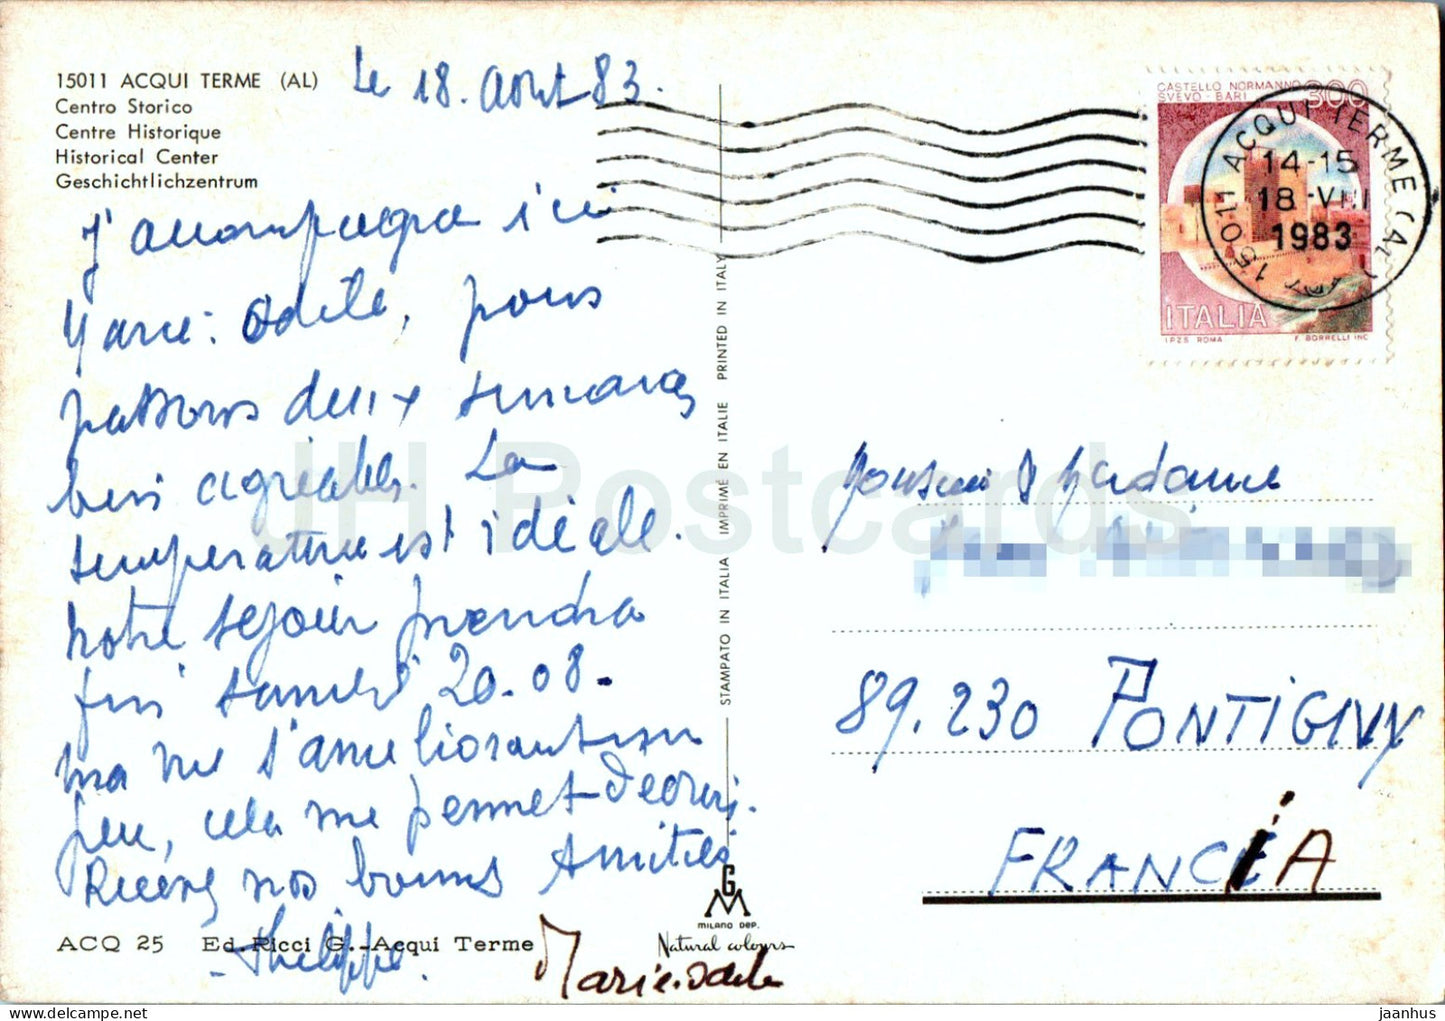 15011 ACQUI TERME (AL)
Centro Storico
Centre Historique
Historical Center
Geschichtlichzentrum
Le 18. Août 83.
J'accompagne ici
Marie-Odile, nous
passons deux semaines
bien agréables. La
température est idéale.
Notre séjour prendra
fin samedi 20-08-
ma vue s'améliorant un
peu, cela me permet d'écrire.
Recevez nos bonnes Amitiés
Philippe.
Marie-Odile
ACQ 25 Ed. Ricci G.-Acqui Terme
STAMPATO IN ITALIA IMPRIMÉ EN ITALIE PRINTED IN ITALY
GM
MILANO DEP.
Natural colours
CASTELLO NORMANNO
SVEVO - BARI 300
ITALIA
I.P.Z.S. ROMA F. BORRELLI INC
15011 ACQUI TERME (AL)
14-15
18-VIII
1983
Monsieur & Madame
89.230 PONTIGNY
FRANCIA
JH Postcards
jaanhus